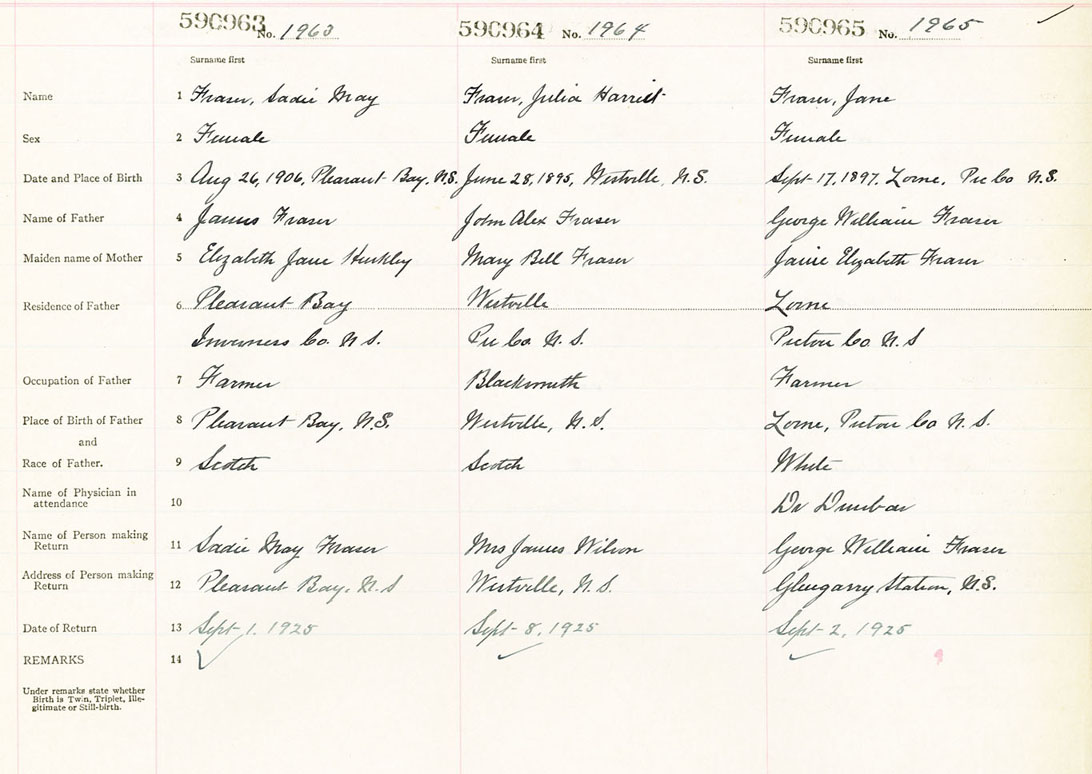 590963 No. 1963 590964 No. 1964 590965 No. 1965
Surname first Surname first Surname first
Name 1 Fraser, Sadie May Fraser, Julia Harriet Fraser, Jane
Sex 2 Female Female Female
Date and Place of Birth 3 Aug 26, 1906, Pleasant Bay, N.S. June 28, 1895, Westville, N.S. Sept 17, 1897. Lorne, Pic Co N.S.
Name of Father 4 James Fraser John Alex Fraser George William Fraser
Maiden name of Mother 5 Elizabeth Jane Hinkley Mary Bell Fraser Janie Elizabeth Fraser
Residence of Father 6 Pleasant Bay Westville Lorne
Inverness Co. N S. Pic Co. N. S. Pictou Co N. S
Occupation of Father 7 Farmer Blacksmith Farmer
Place of Birth of Father 8 Pleasant Bay, N.S. Westville, N.S. Lorne, Pictou Co N. S.
and
Race of Father. 9 Scotch Scotch White
Name of Physician in
attendance 10 Dr Dunbar
Name of Person making
Return 11 Sadie May Fraser Mrs James Wilson George William Fraser
Address of Person making
Return 12 Pleasant Bay, N.S Westville, N.S. Glengarry Station, N.S.
Date of Return 13 Sept 1. 1925 Sept 8, 1925 Sept 2, 1925
REMARKS 14
Under remarks state whether
Birth is Twin, Triplet, Ille-
gitimate or Still-birth.